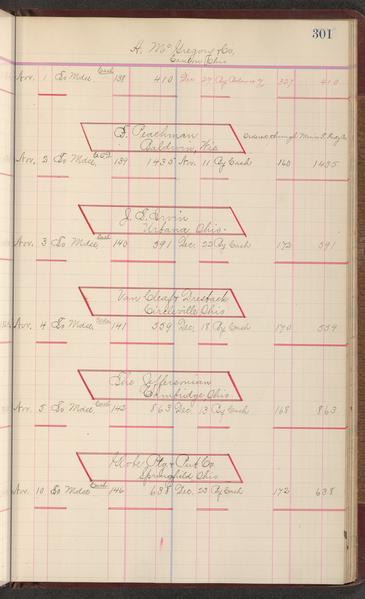 301
H. McGregor & Co.
Canton Ohio
Nov. 1 To Mdse Cash 138 410 Dec 27 By 327 410
E. Peachman
Baldwin, Wis
Nov. 2 To Mdse 139 1435 Nov. 11 By Cash 160 1435
J. E. Ervin
Urbana Ohio.
Nov. 3 To Mdse Cash 140 591 Dec. 23 By Cash 172 591
Van Cleaf & Dresback
Circleville Ohio
Nov. 4 To Mdse 141 559 Dec. 18 By Cash 170 559
The Jeffersonian
Cambridge Ohio
Nov. 5 To Mdse Cash 142 863 Dec. 13 By Cash 168 863
Globe Ptg & Pub Co
Springfield Ohio
Nov. 10 To Mdse Cash 146 638 Dec. 23 By Cash 172 638